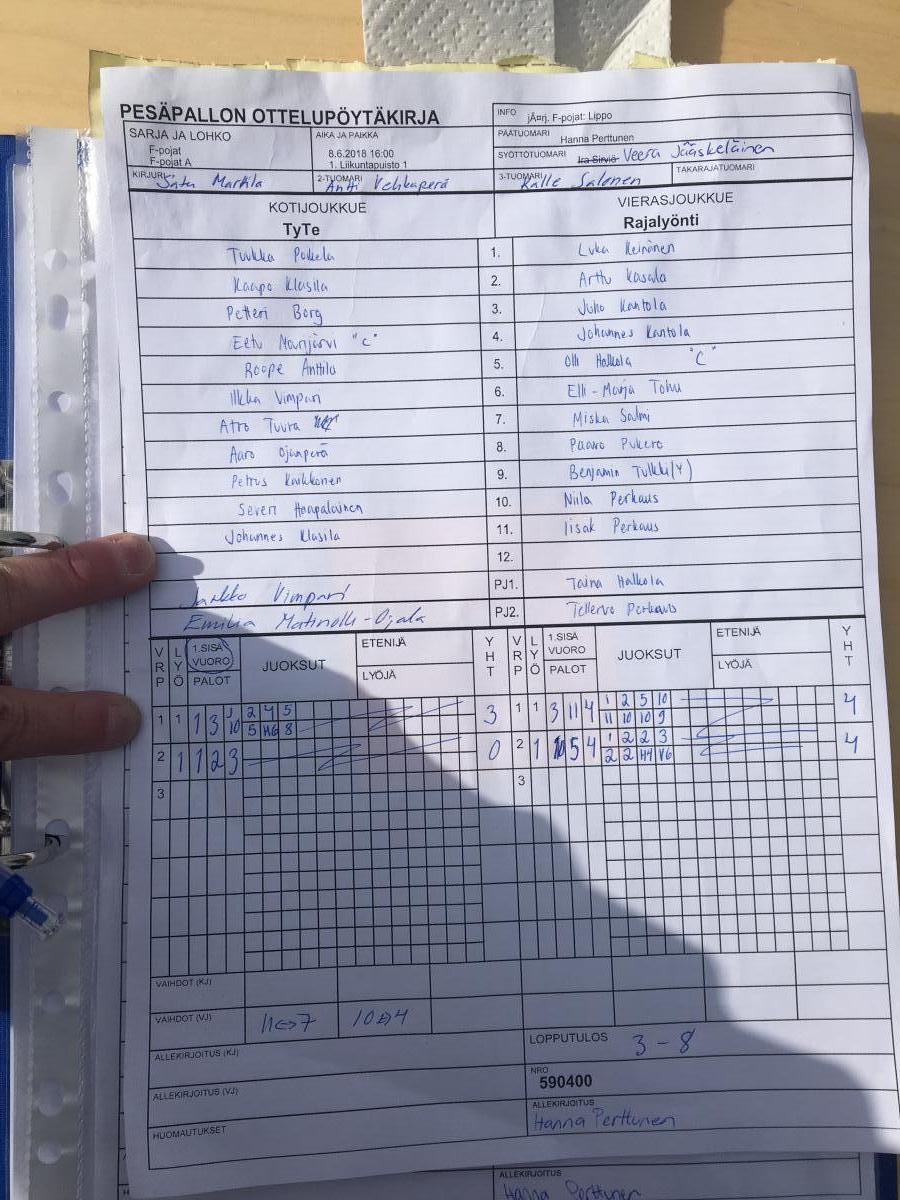 PESÄPALLON OTTELUPÖYTÄKIRJA
INFO jÃ¤rj. F-pojat: Lippo
SARJA JA LOHKO
F-pojat
F-pojat A
AIKA JA PAIKKA
8.6.2018 16:00
1. Liikuntapuisto 1
PÄÄTUOMARI Hanna Perttunen
SYÖTTÖTUOMARI Ira Sirviö Veera Jääskeläinen
KIRJURI Satu Markila
2-TUOMARI Antti Vehkaperä
3-TUOMARI Kalle Salonen
TAKARAJATUOMARI
KOTIJOUKKUE
TyTe
VIERASJOUKKUE
Rajalyönti
Tuukka Pokela 1. Luka Keinänen
Kaapo Klasila 2. Arttu Kasala
Petteri Borg 3. Juho Kantola
Eetu "C" 4. Johannes Kantola
Roope Anttila 5. Olli Halkola "C"
Ilkka Vimpari 6. Elli-Marja Tohu
Atro Tuura 7. Miska Salmi
Aaro Ojanperä 8. Paavo
Petrus Karkkonen 9. Benjamin Tulkki (Y)
Severi Haapalainen 10. Niila Perkaus
Johannes Klasila 11. Iisak Perkaus
12.
Jarkko Vimpari PJ1. Taina Halkola
Emilia Matinolli-Ojala PJ2. Tellervo Perkaus
VRP LYÖ 1.SISÄ VUORO PALOT JUOKSUT ETENIJÄ LYÖJÄ YHT VRP LYÖ 1.SISÄ VUORO PALOT JUOKSUT ETENIJÄ LYÖJÄ YHT
1 1 1 3 10 2 4 5 3 1 1 3 11 4 1 2 5 10 4
5 H6 8 11 10 10 9
2 1 1 2 3 0 2 1 5 4 1 2 2 3 4
2 2 H4 V6
3 3
VAIHDOT (KJ)
VAIHDOT (VJ) 11⇔7 10⇔4
ALLEKIRJOITUS (KJ)
LOPPUTULOS 3 - 8
ALLEKIRJOITUS (VJ)
NRO
590400
HUOMAUTUKSET
ALLEKIRJOITUS
Hanna Perttunen
ALLEKIRJOITUS
Hanna Perttunen